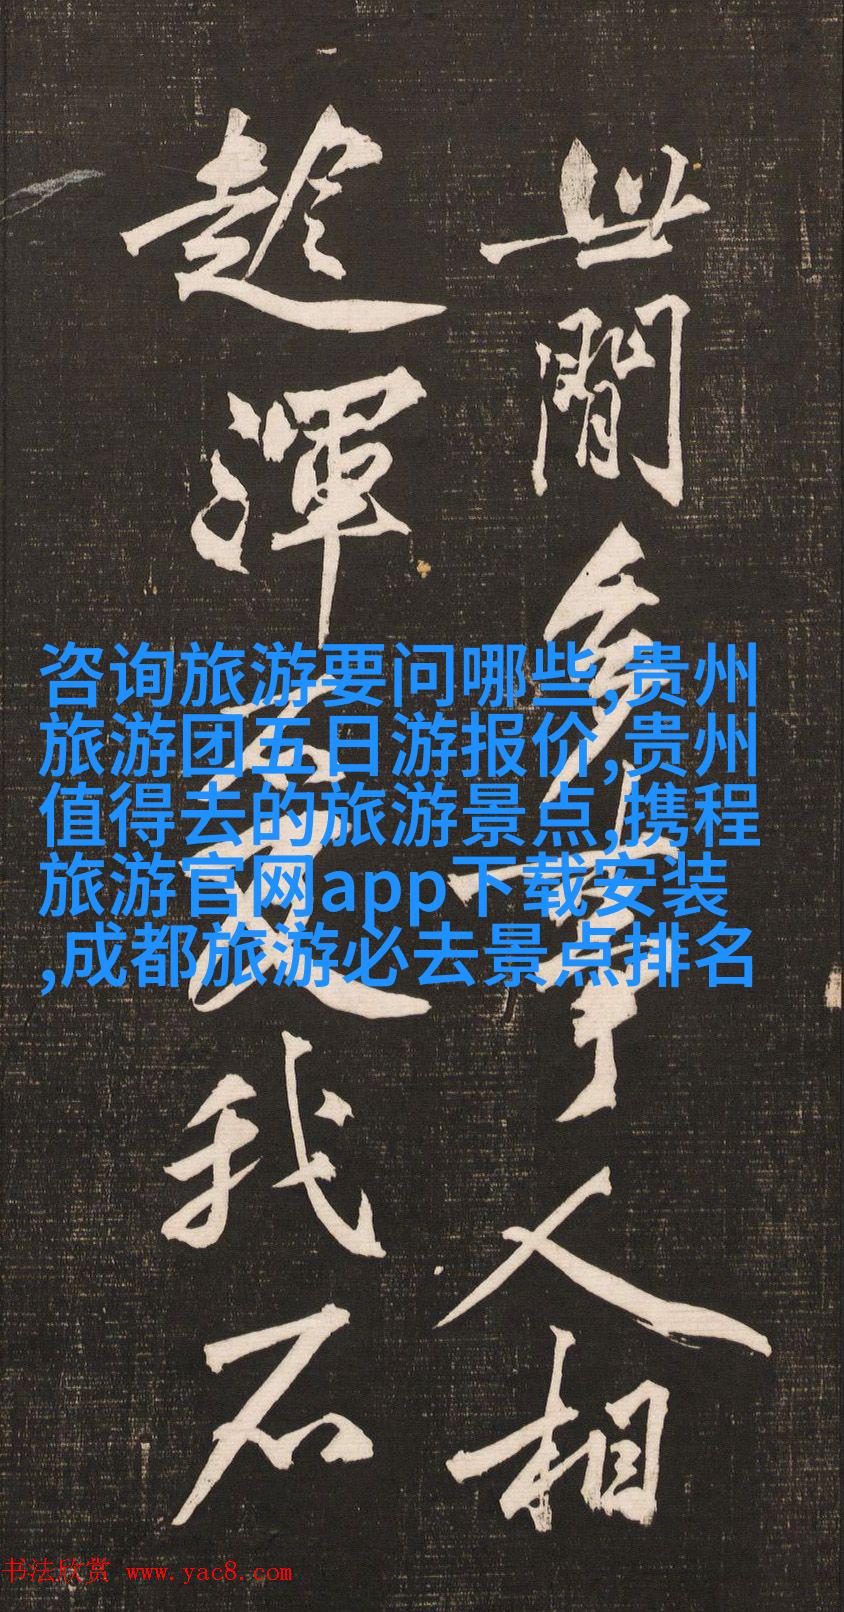 世間多事人相
趁渾不是我不
咨询旅游要问哪些,贵州
旅游团五日游报价,贵州
值得去的旅游景点,携程
旅游官网app下载安装
,成都旅游必去景点排名
书法欣赏 www.yac8.com